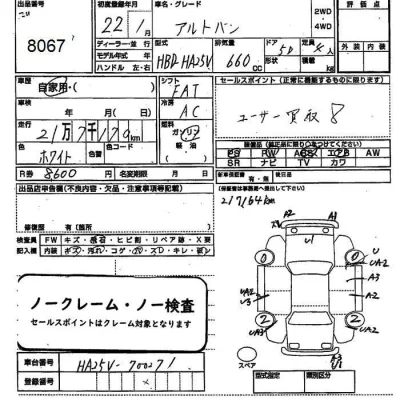 出品番号 初度登録年月 車名・グレード 2WD・4WD 評価点
8067 22年1月 アルトバン
ディーラー・並行 型式 排気量 ドア形状 定員 外装 内装
モデル年式 年
ハンドル 左・右 HBD-HA25V 660CC 5D 4人 積載 kg
車歴 自家用・( ) シフト FAT セールスポイント(正常に機能するものに限ります)
車検 年 月(日) 冷房 AC ユーザー買取 8
走行 21万7千179km 燃料 ガソリン 軽油
装備品(純正品に限り○をつけてください)
色 ホワイト 色替 色コード PS PW ABS エアB AW
SR ナビ TV カワ
R券 8600 名変期限 月 日 新車保証書 有・無 後日品
出品店申告欄(不良内容・欠品・注意事項等記載) (保証書は事務局へ提出して下さい)
217164km
修復歴 有(箇所 )
検査員記入欄 FW キズ・飛石・ヒビ割・リペア跡・X要
内装 キズ・汚れ・コゲ・穴・スレ・キレ・
A2 A1
U1
0 0 U
UA2
A3
UA2 A2
U3
2 2
UA3 UA2
A3
U1
スペア
ノークレーム・ノー検査
セールスポイントはクレーム対象となります
車台番号 HA25V-700271
登録番号 型式指定 類別区分